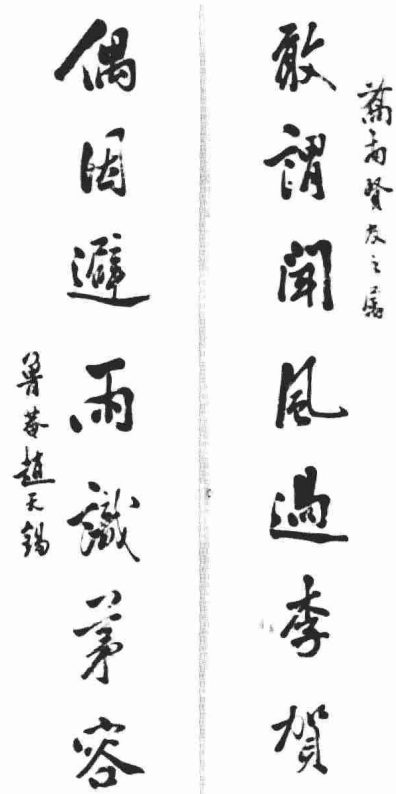 賢友之屬
敢謂聞風過李賀
偶因避雨識茅容
魯菴趙天錫